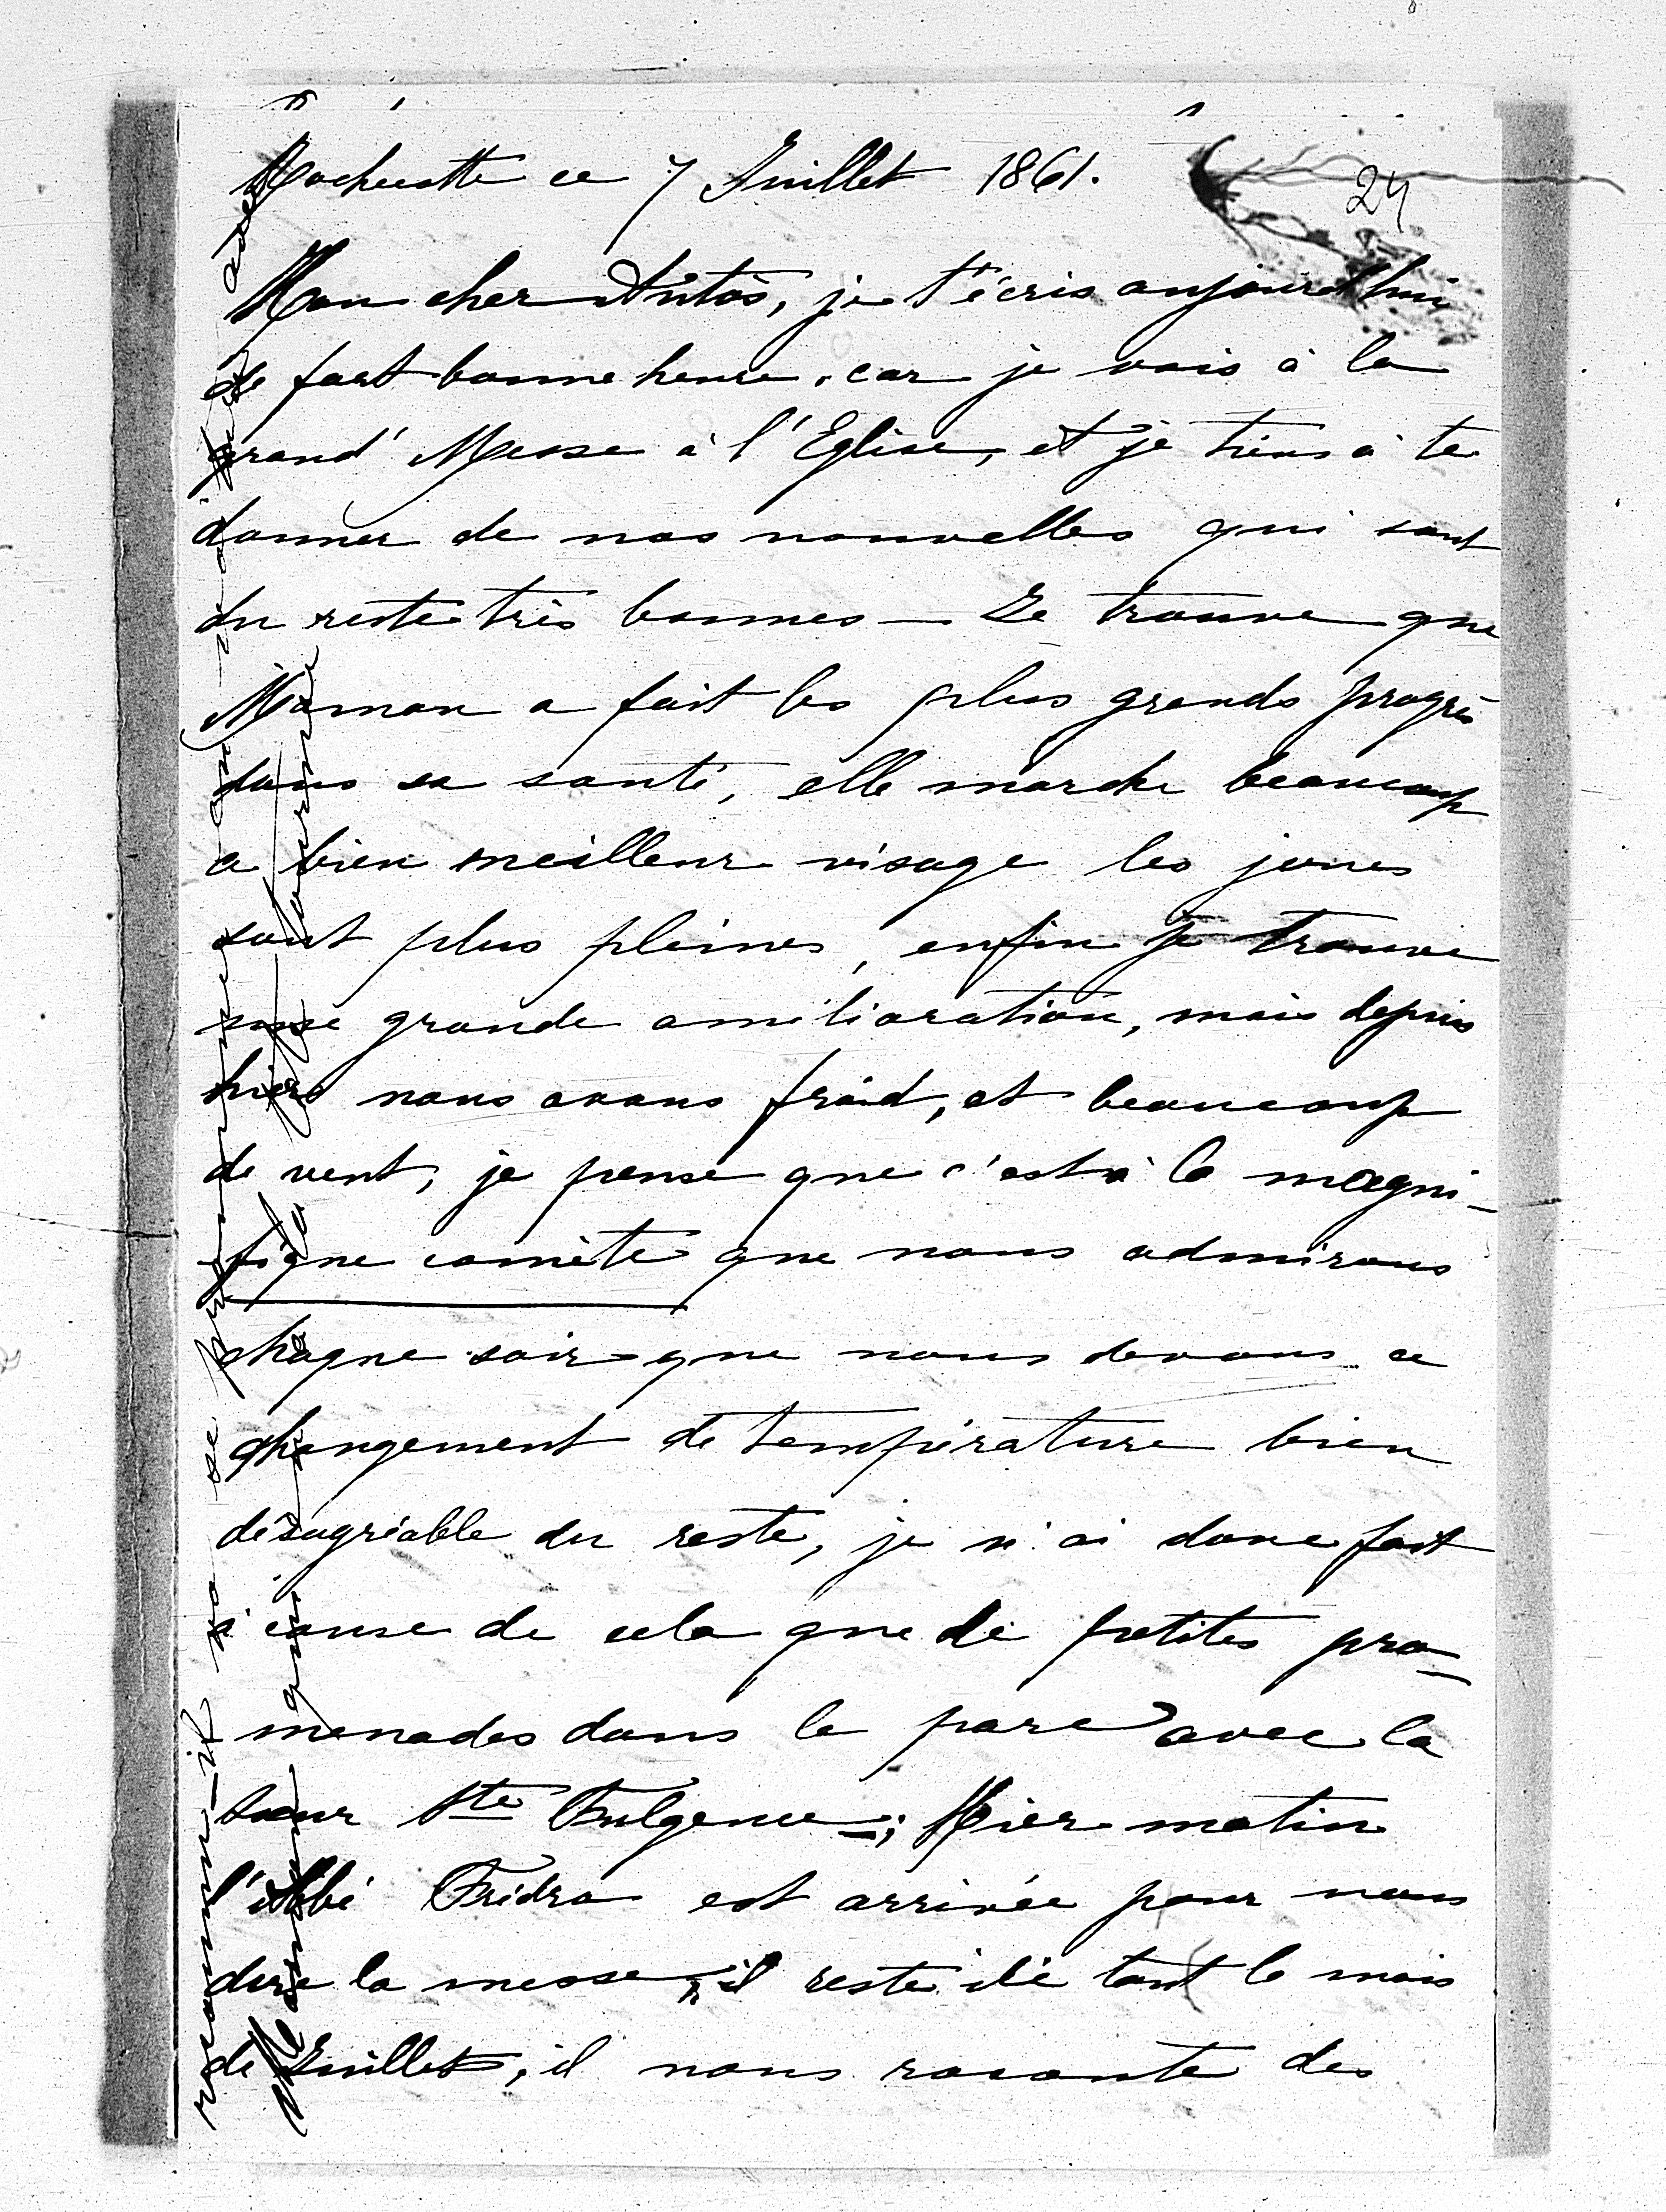 Rochecotte ce 7 Juillet 1861.
24
Mon cher Antos, je t'écris aujourd'hui
de fort bonne heure, car je vais à la
grand' Messe à l'Eglise, et je tiens à te
donner de nos nouvelles qui sont
du reste très bonnes — Je trouve que
Maman a fait les plus grands progrès
dans sa santé, elle marche beaucoup
a bien meilleur visage les joues
sont plus pleines, enfin je trouve
une grande amélioration, mais depuis
hier nous avons froid, et beaucoup
de vent, je pense que c'est à la magni-
fique comète que nous admirons
chaque soir que nous devons ce
changement de température bien
désagréable du reste, je n'ai donc fait
à cause de cela que de petites pro-
menades dans le parc avec la
sœur Ste Fulgence; Hier matin
l'Abbé est arrivée pour nous
dire la messe, il reste ici tout le mois
de Juillet, il nous raconte des